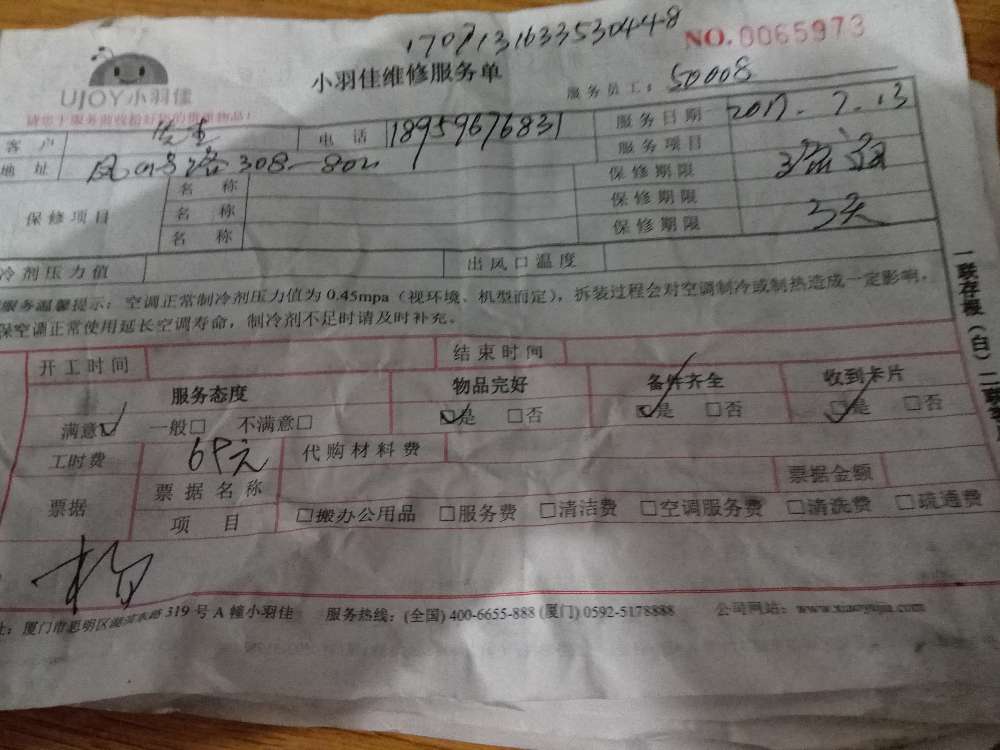 170713163353044-8
NO. 0065973
UJOY小羽佳
小羽佳维修服务单
服务员工: 50008
客户 电话 18959676831 服务日期 2017.7.13
地址 308-802 服务项目
保修项目 名称 保修期限
名称 保修期限
名称 保修期限 3天
冷剂压力值 出风口温度
服务温馨提示：空调正常制冷剂压力值为0.45mpa（视环境、机型而定），拆装过程会对空调制冷或制热造成一定影响，
保空调正常使用延长空调寿命，制冷剂不足时请及时补充。
开工时间 结束时间
服务态度 物品完好 备件齐全 收到卡片
满意☑ 一般□ 不满意□ ☑是 □否 ☑是 □否 ☑是 □否
工时费 元 代购材料费
票据 票据名称 票据金额
项目 □搬办公用品 □服务费 □清洁费 □空调服务费 □清洗费 □疏通费
杨
址：厦门市思明区湖滨东路319号A幢小羽佳 服务热线：(全国) 400-6655-888 (厦门) 0592-5178888 公司网站：www.xiaoyujia.com
一联存根（白）二联